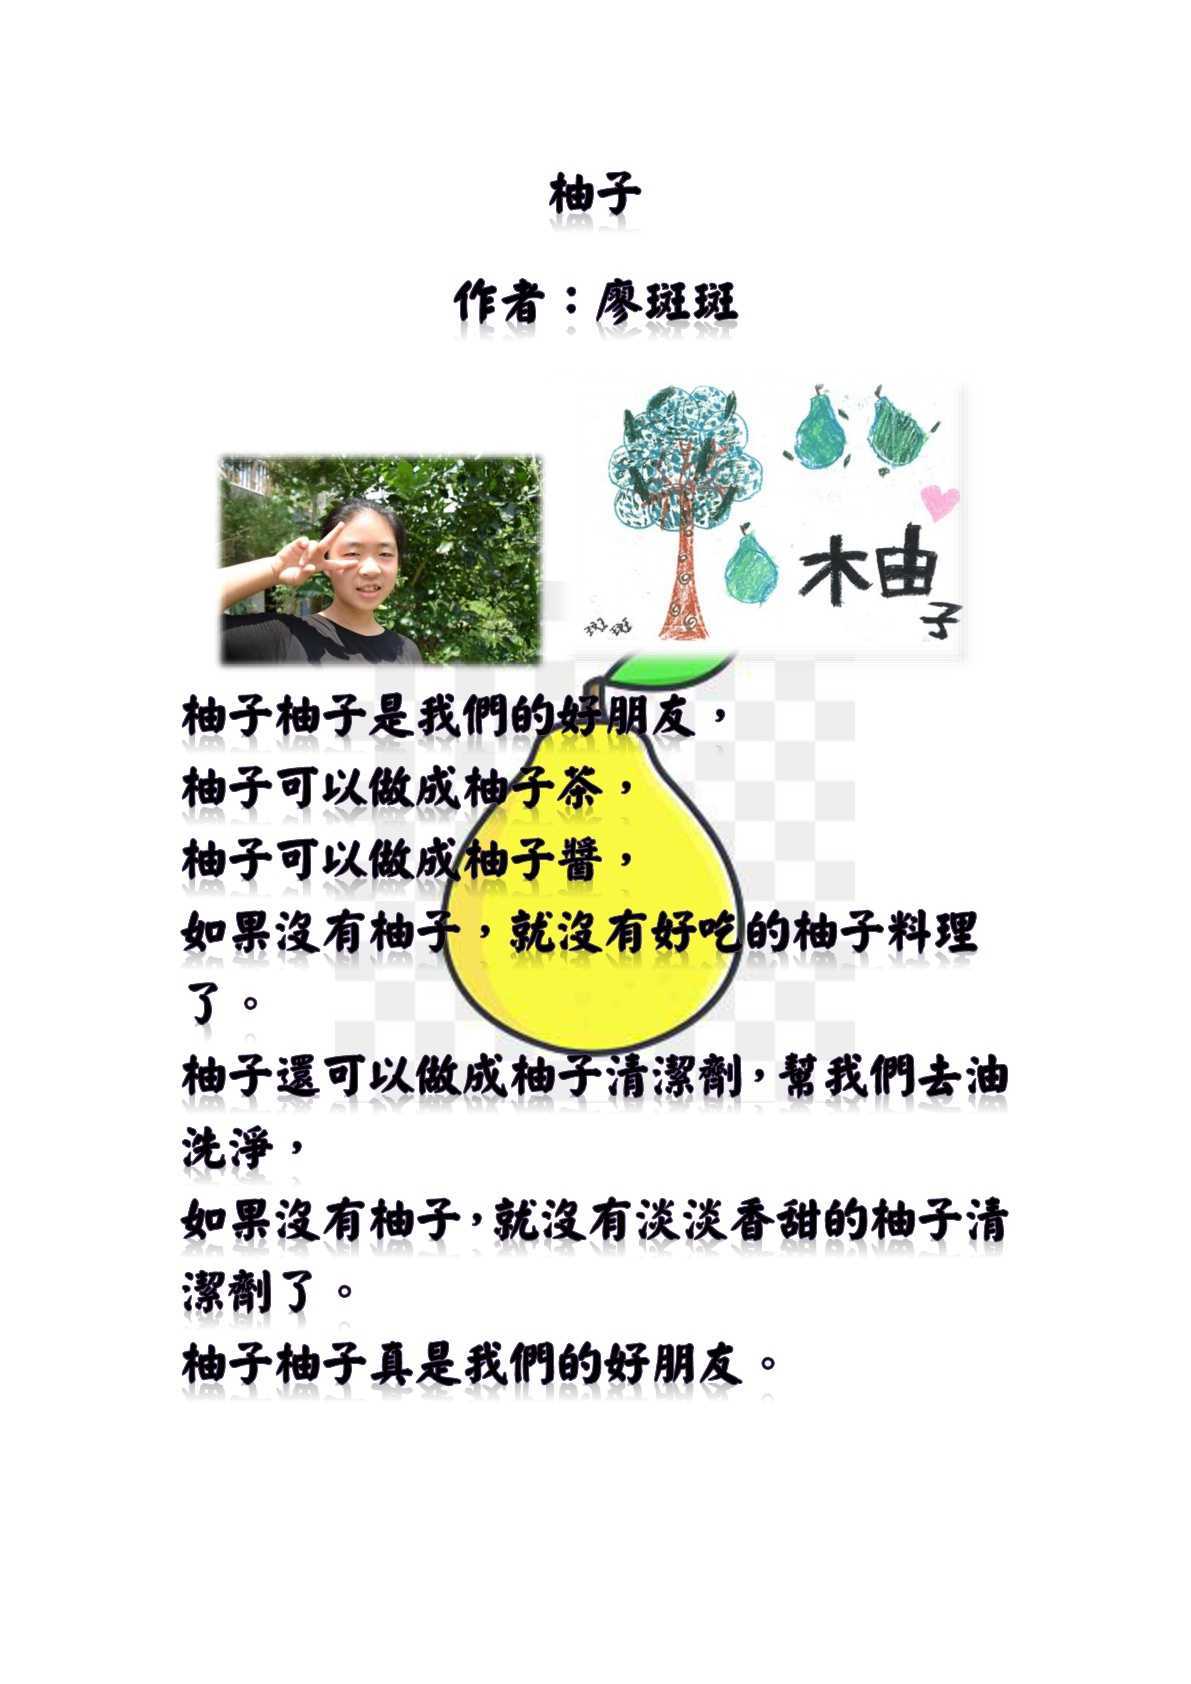 柚子
作者：廖斑斑
柚子
斑斑
柚子柚子是我們的好朋友，
柚子可以做成柚子茶，
柚子可以做成柚子醬，
如果沒有柚子，就沒有好吃的柚子料理
了。
柚子還可以做成柚子清潔劑，幫我們去油
洗淨，
如果沒有柚子，就沒有淡淡香甜的柚子清
潔劑了。
柚子柚子真是我們的好朋友。